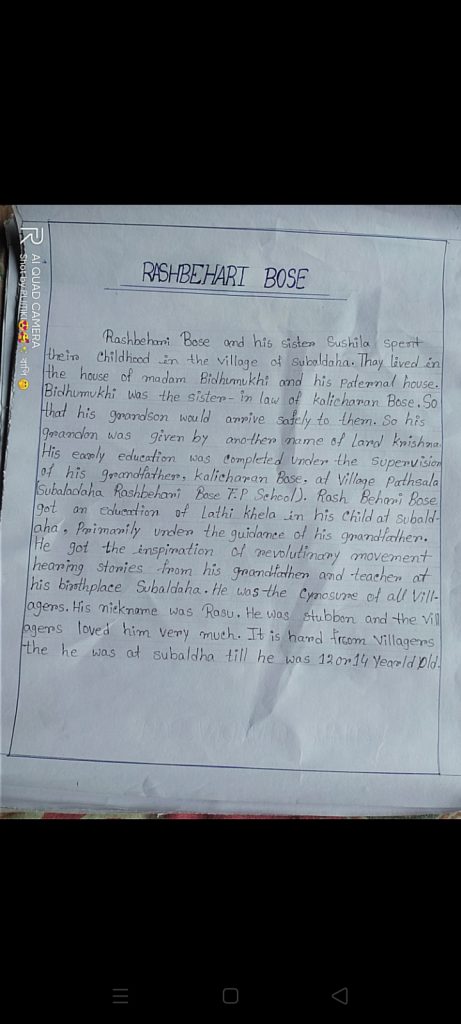 RASHBEHARI BOSE
Rashbehari Bose and his sister Sushila spent
their childhood in the village of subaldaha. Thay lived in
the house of madam Bidhumukhi and his paternal house.
Bidhumukhi was the sister-in law of kalicharan Bose. So
that his grandson would arrive safely to them. So his
grandon was given by another name of Lard krishna
His early education was completed under the supervision
of his grandfather, kalicharan Bose, at Village Pathsala
(Subaladaha Rashbehari Bose F.P School). Rash Behari Bose
got an education of Lathi khela in his child at subald-
aha, Primarily under the guidance of his grandfather.
He got the inspiration of revolutinary movement
hearing stories from his grandfather and teacher at
his birthplace Subaldaha. He was the Cynosure of all Vill-
agers. His nickname was Rasu. He was stubbon and the vill
agers loved him very much. It is hard from Villagers
the he was at subaldha till he was 12 or 14 Yearld Old.
AI QUAD CAMERA
Shot by